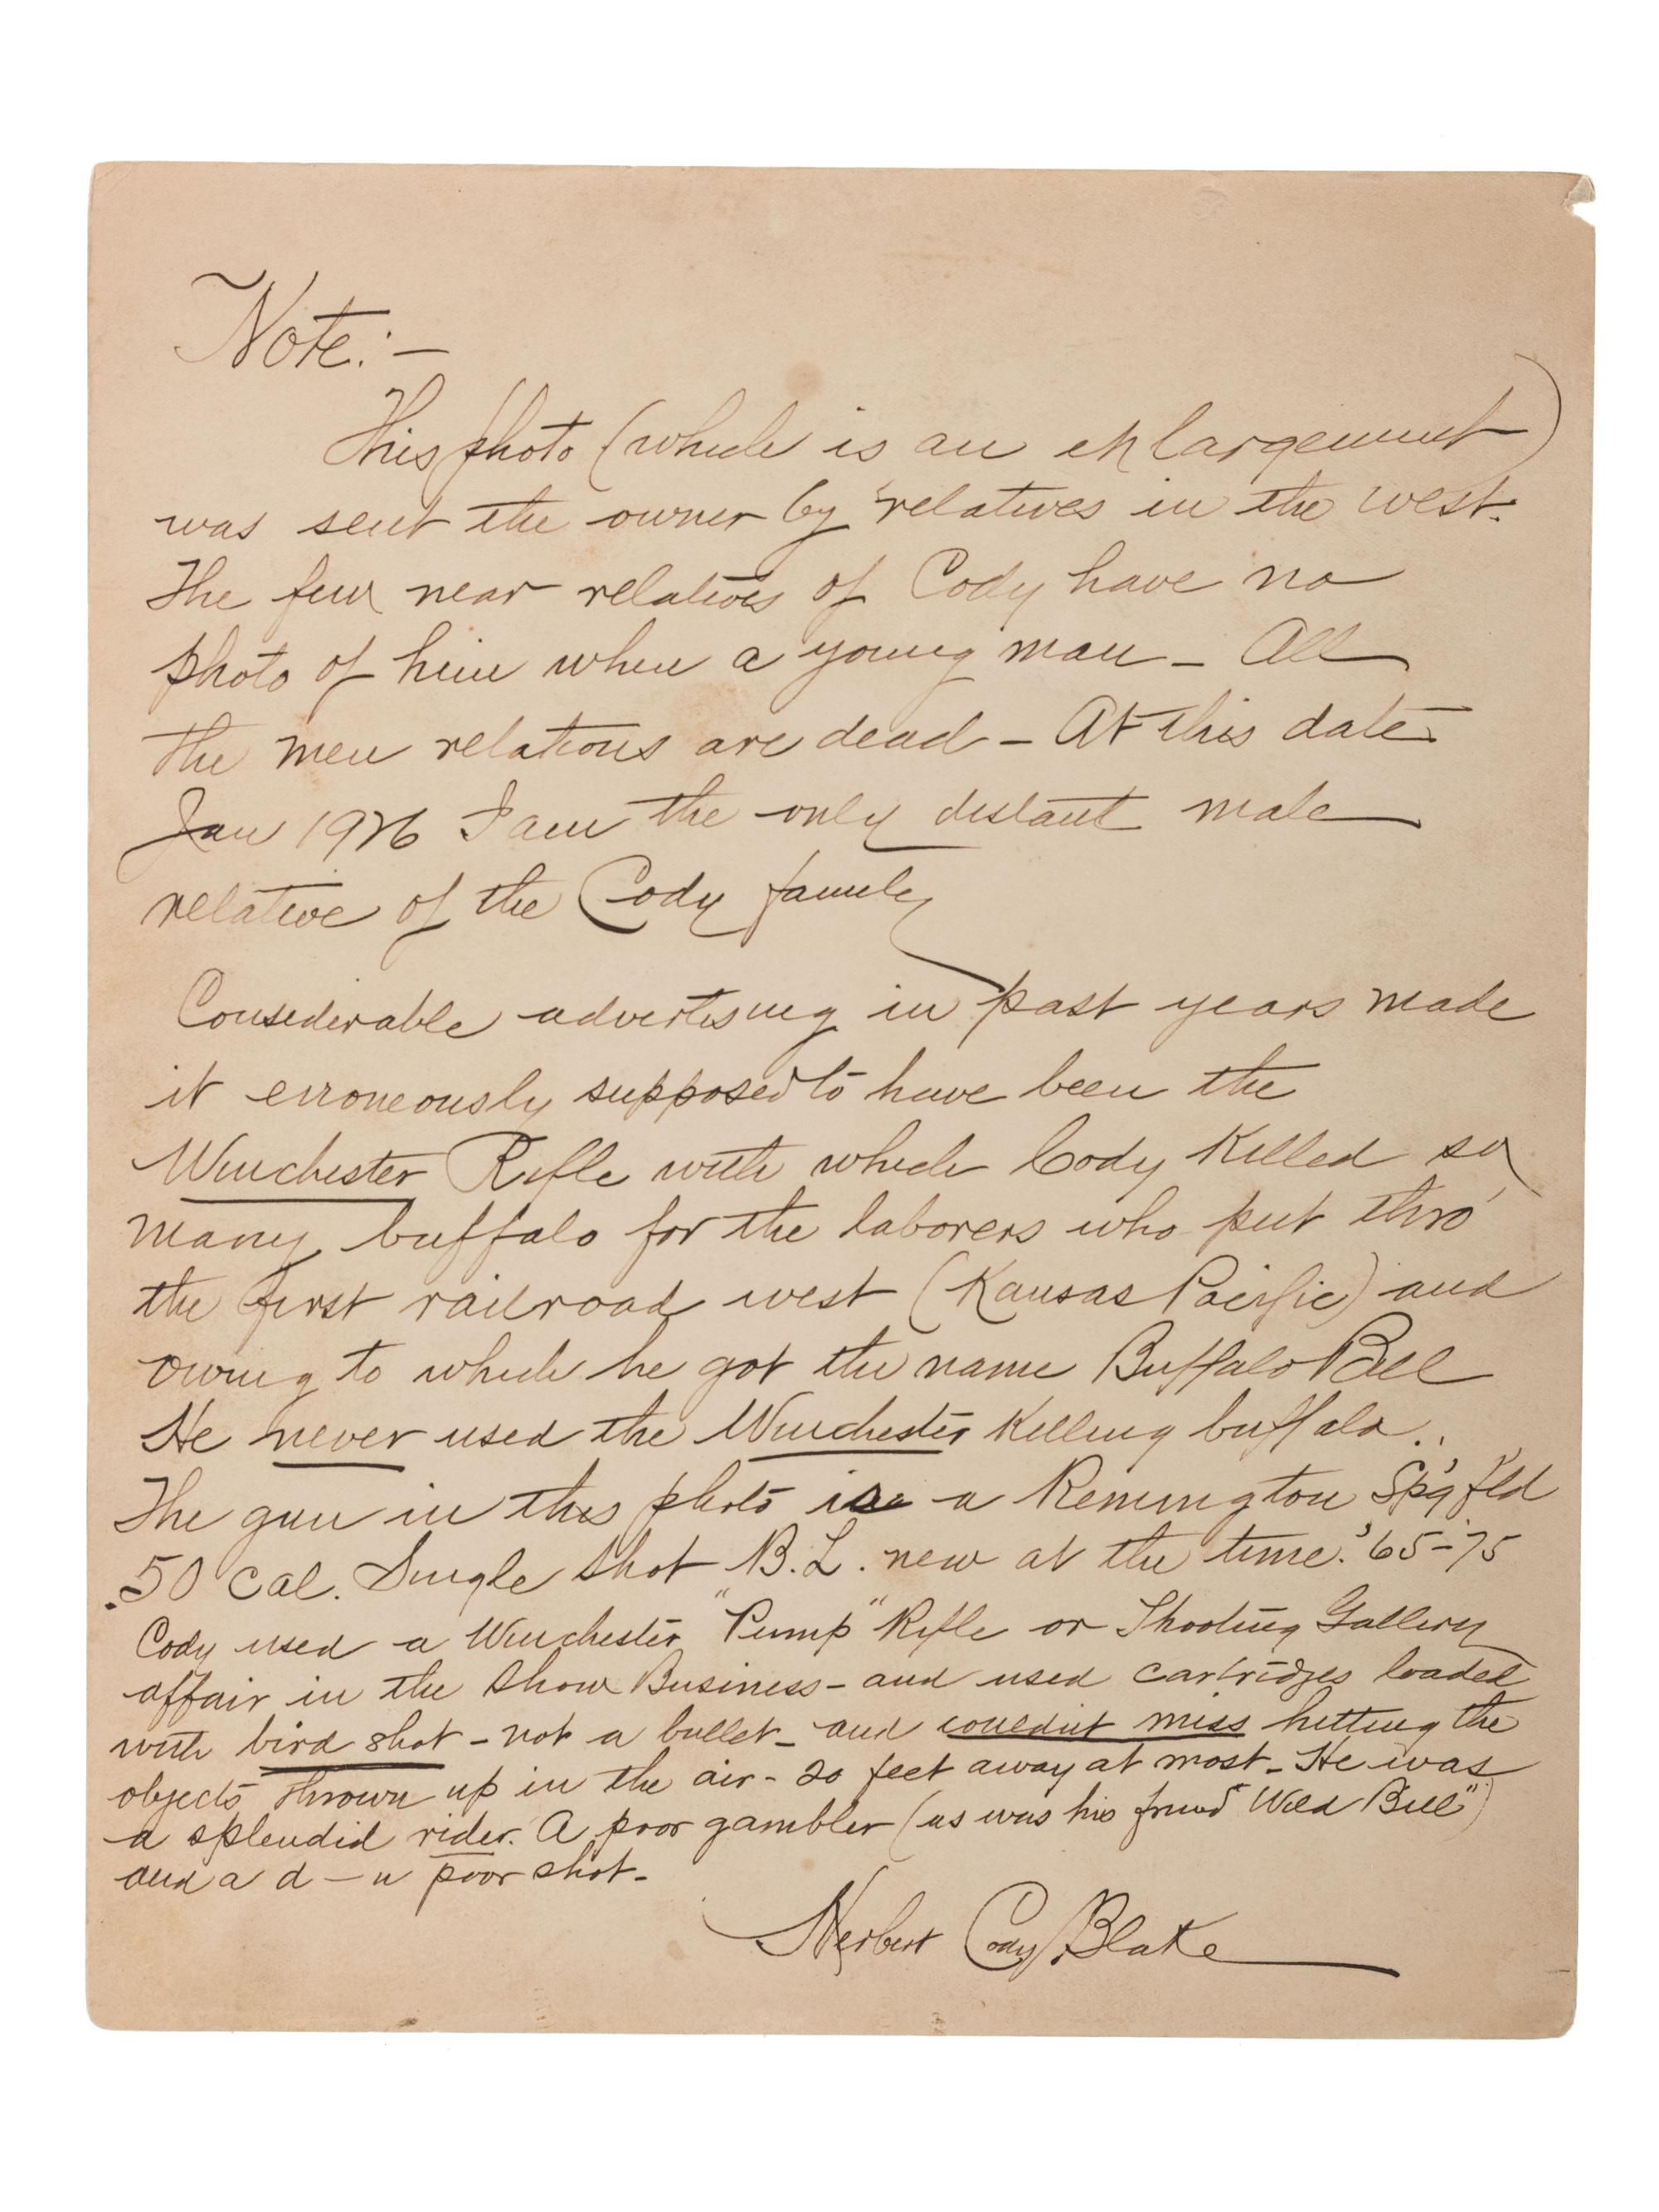 Note:-
This photo (which is an enlargement)
was sent the owner by relatives in the west.
The few near relatives of Cody have no
photo of him when a young man - All
the men relations are dead - At this date
Jan 1926 I am the only distant male
relative of the Cody family
Considerable advertising in past years made
it erroneously supposed to have been the
Winchester Rifle with which Cody killed so
many buffalo for the laborers who put thro'
the first railroad west (Kansas Pacific) and
owing to which he got the name Buffalo Bill
He never used the Winchester killing buffalo..
The gun in this photo is a Remington Sp'g'fld
.50 cal. Single shot B.L. new at the time. '65-'75
Cody used a Winchester "Pump" Rifle or Shooting Gallery
affair in the Show Business - and used cartridges loaded
with bird shot - not a bullet - and couldn't miss hitting the
objects thrown up in the air - 20 feet away at most - He was
a splendid rider. A poor gambler (as was his friend Wild Bill")
and a d-n poor shot -
Herbert Cody Blake